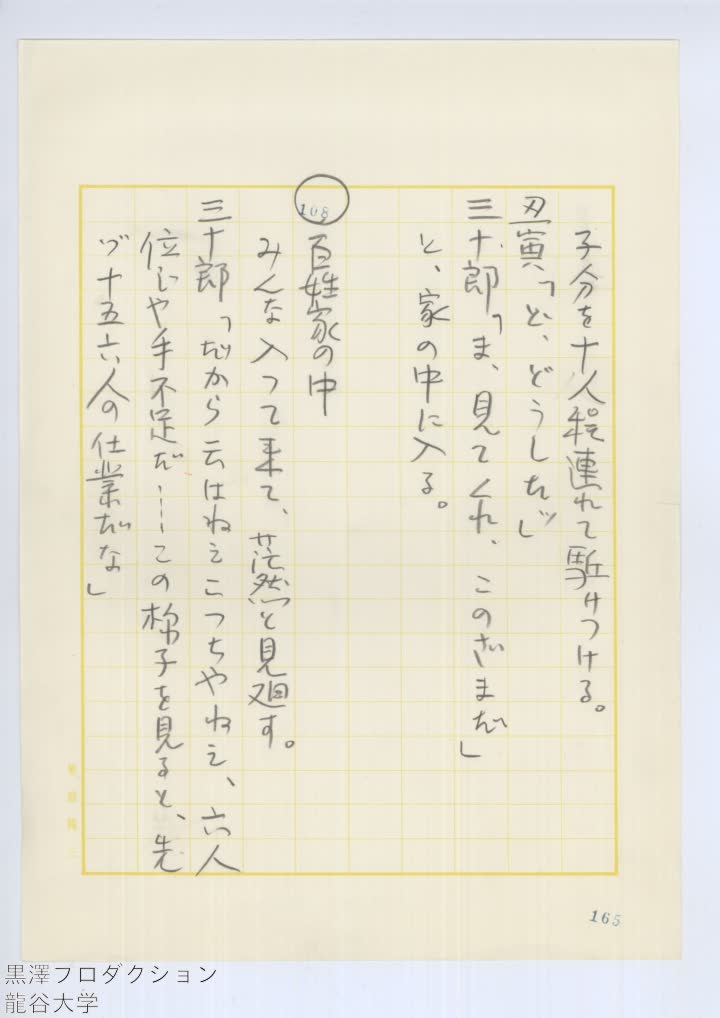 子分を十人程連れて駈けつける。
丑寅「ど、どうしたッ」
三十郎「ま、見てくれ、このざまだ」
と、家の中に入る。
108
百姓家の中
みんな入つて来て、茫然と見廻す。
三十郎「だから云はねえこつちやねえ、六人
位じや手不足だ……この様子を見ると、先
づ十五六人の仕業だな」
165
黒澤プロダクション
龍谷大学